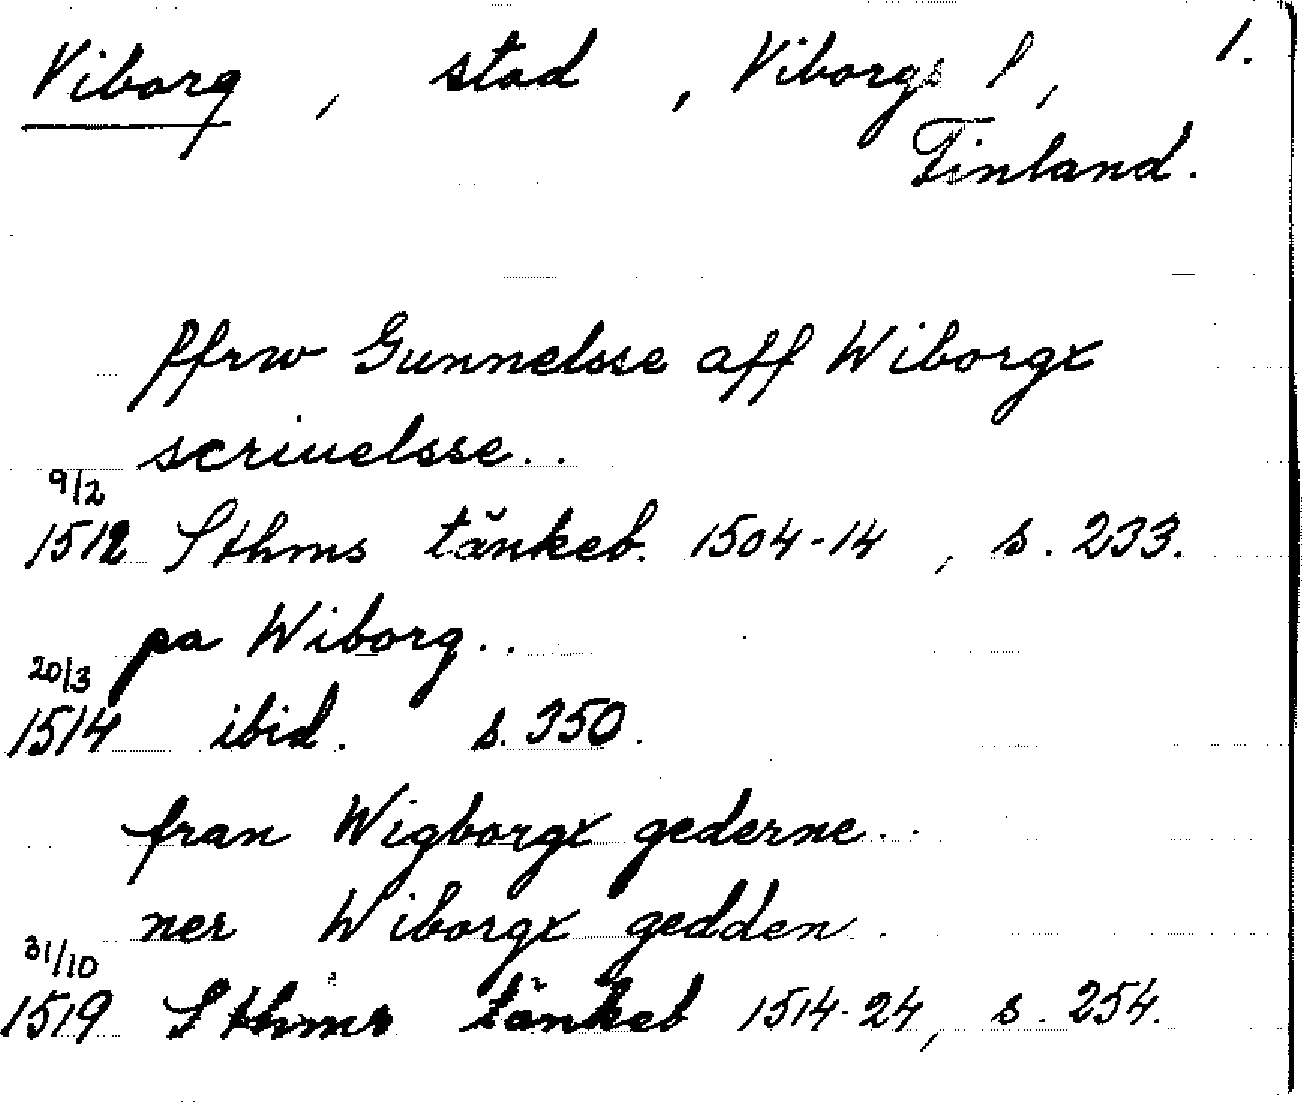 Viborg, stad, Viborgs l, 1.
Finland.
ffrw Gunnelsse aff Wiborgx
scriuelsse..
9/2
1512 Sthms tänkeb. 1504-14, s. 233.
pa Wiborg..
20/3
1514 ibid. s. 350.
fran Wigborgx gederne..
ner Wiborgx gedden.
31/10
1519 Sthms tänkeb 1514-24, s. 254.